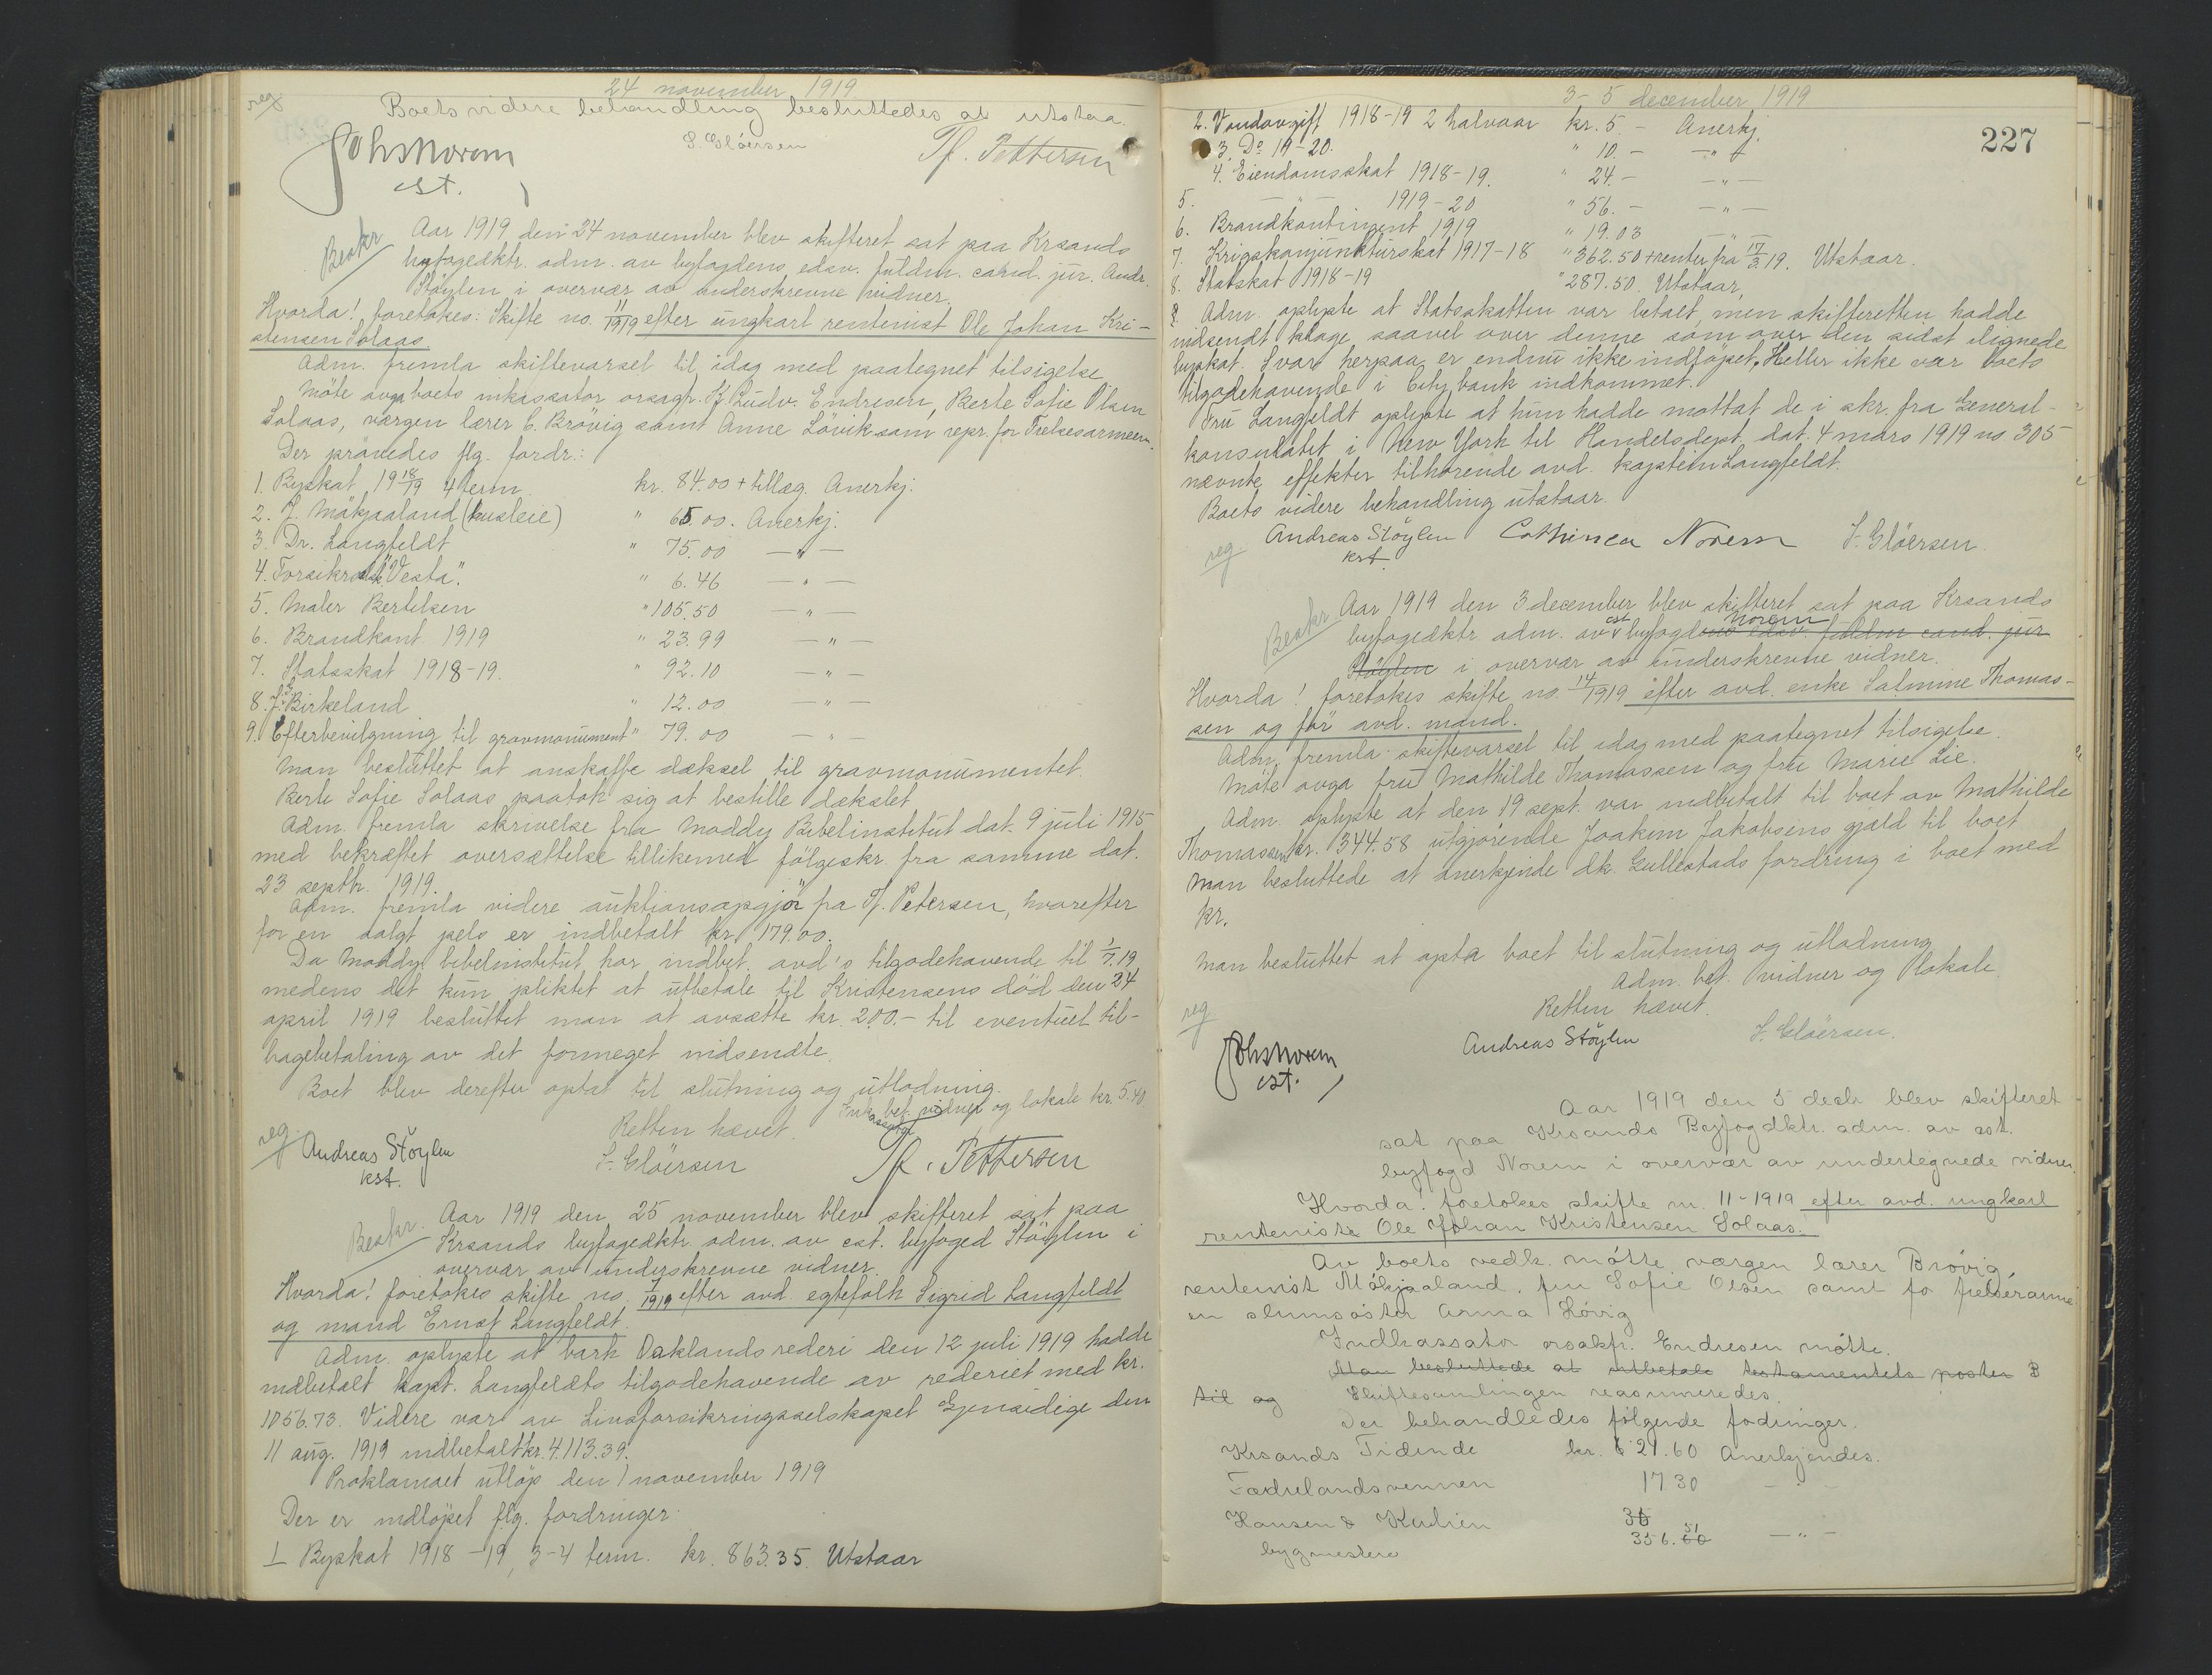 24 november 1919
reg
Boets videre behandling besluttedes at utstaa.
Johs Norem S. Glöersen Tf. Pettersen
cst.
Beskr
Aar 1919 den 24 november blev skifteret sat paa Krsands
byfogedktr. adm. av byfogdens edsv. fuldm. cand. jur. Andr.
Stöylen i overvær av underskrevne vidner.
Hvorda! foretokes: Skifte no. 11/1919 efter ungkarl rentenist Ole Johan Kri-
stensen Solaas.
Adm. fremla skiftevarsel til idag med paategnet tilsigelse
Möte avga boets inkassator orsagf. Kf. Ludv. Endresen, Berte Sofie Olsen
Solaas, værgen lærer C. Brövig samt Anne Lövik som repr. for Frelsesarmeen.
Der prövedes flg. fordr.:
1. Byskat 1918/19 4 term. kr. 84.00 + tillæg. Anerkj.
2. J. Mökjaaland (husleie) " 65.00. Anerkj.
3. Dr. Langfeldt " 75.00 — " —
4. Forsikr.selsk. "Vesta". " 6.46 — " —
5. Maler Bertelsen " 105.50 — " —
6. Brandkont. 1919 " 23.99 — " —
7. Statsskat 1918-19. " 92.10 — " —
8. J. Birkeland " 12.00 — " —
9. Efterbevilgning til gravmonument " 79.00 — " —
Man besluttet at anskaffe dæksel til gravmonumentet.
Berte Sofie Solaas paatok sig at bestille dækslet
Adm. fremla skrivelse fra Moddy Bibelinstitut dat. 9 juli 1915
med bekræftet oversættelse tillikemed fölgeskr. fra samme dat.
23 septbr. 1919.
Adm. fremla videre auktionsopgjör fra Tf. Petersen, hvorefter
for en solgt pels er indbetalt kr. 179.00.
Da Moddy bibelinstitut har indbet. avd's tilgodehavende til 1/7.19
medens det kun pliktet at utbetale til Kristensens död den 24
april 1919 besluttet man at avsætte kr. 200.- til eventuel til-
bagebetaling av det formeget indsendte.
Boet blev derefter optat til slutning og utlodning.
Inkassator bet. vidner og lokale kr. 5.40
Retten hævet.
reg Andreas Stöylen S. Glöersen Tf. Pettersen
kst.
Beskr.
Aar 1919 den 25 november blev skifteret sat paa
Krsands byfogedktr adm. av cst. byfoged Stöylen i
overvær av underskrevne vidner.
Hvorda! foretokes skifte no. 7/1919 efter avd. egtefolk Sigrid Langfeldt
og mand Ernst Langfeldt.
Adm. oplyste at bark Oaklands rederi den 12 juli 1919 hadde
indbetalt kapt. Langfeldts tilgodehavende av rederiet med kr.
1056.73. Videre var av Livsforsikringsselskapet Gjensidige den
11 aug. 1919 indbetalt kr. 4113.39.
Proklamaet utlöp den 1 november 1919
Der er indlöpet flg. fordringer:
1 Byskat 1918-19, 3-4 term. kr. 863.35. Utstaar
3-5 december 1919
227
2. Vandavgift 1918-19 2 halvaar kr. 5.- Anerkj.
3. Do 19-20. " 10.- — " —
4. Eiendomsskat 1918-19. " 24.- — " —
5. — " — 1919-20 " 56.- — " —
6. Brandkontingent 1919 " 19.03 — " —
7. Krigskonjunkturskat 1917-18 " 362.50 + renter fra 17/3.19. Utstaar.
8. Statskat 1918-19 " 287.50. Utstaar.
Adm. oplyste at Statsskatten var betalt, men skifteretten hadde
indsendt klage saavel over denne som over den sidst ilignede
byskat. Svar herpaa er endnu ikke indlöpet. Heller ikke var boets
tilgodehavende i City bank indkommet.
Fru Langfeldt oplyste at hun hadde mottat de i skr. fra General-
konsulatet i New York til Handelsdept. dat. 4 mars 1919 no 305
nævnte effekter tilhørende avd. kaptein Langfeldt.
Boets videre behandling utstaar.
reg Andreas Stöylen Cathinca Norem S. Glöersen.
kst.
Beskr.
Aar 1919 den 3 december blev skifteret sat paa Krsands
byfogedktr adm. av cst byfogdens edsv. fuldm. cand. jur Norem
Stöylen i overvær av underskrevne vidner.
Hvorda! foretokes skifte no. 14/1919 efter avd. enke Salmine Thomas-
sen og för avd. mand.
Adm. fremla skiftevarsel til idag med paategnet tilsigelse.
Möte avga fru Mathilde Thomassen og fru Marie Lie.
Adm. oplyste at den 19 sept. var indbetalt til boet av Mathilde
Thomassen kr. 344.58 utgjørende Joakim Jakobsens gjæld til boet
Man besluttede at anerkjende dk. Gullestads fordring i boet med
kr.
Man besluttet at opta boet til slutning og utlodning
Adm. bet. vidner og lokale.
Retten hævet.
reg
Johs Norem Andreas Stöylen S. Glöersen.
cst.
Aar 1919 den 5 decbr blev skifteret
sat paa Krsands Byfogdktr. adm. av cst.
byfogd Norem i overvær av undertegnede vidner.
Hvorda! foretokes skifte nr. 11-1919 efter avd. ungkarl
renteniste Ole Johan Kristensen Solaas.
Av boets vedk. mötte værgen lærer Brövig,
rentenist Mökjaaland, fru Sofie Olsen samt fo frelserarme
en slumsöster Anna Lövig
Indkassator orsakfr. Endresen mötte.
Man besluttede at utbetale testamentets poster 3
til og Skiftesamlingen reasumeredes
Der behandledes fölgende fodringer.
Krsands Tidende kr. 21.60 Anerkjendes.
Fædrelandsvennen 17 30 — " —
Hansen & 36
bygmestere 356.60 51 — " —